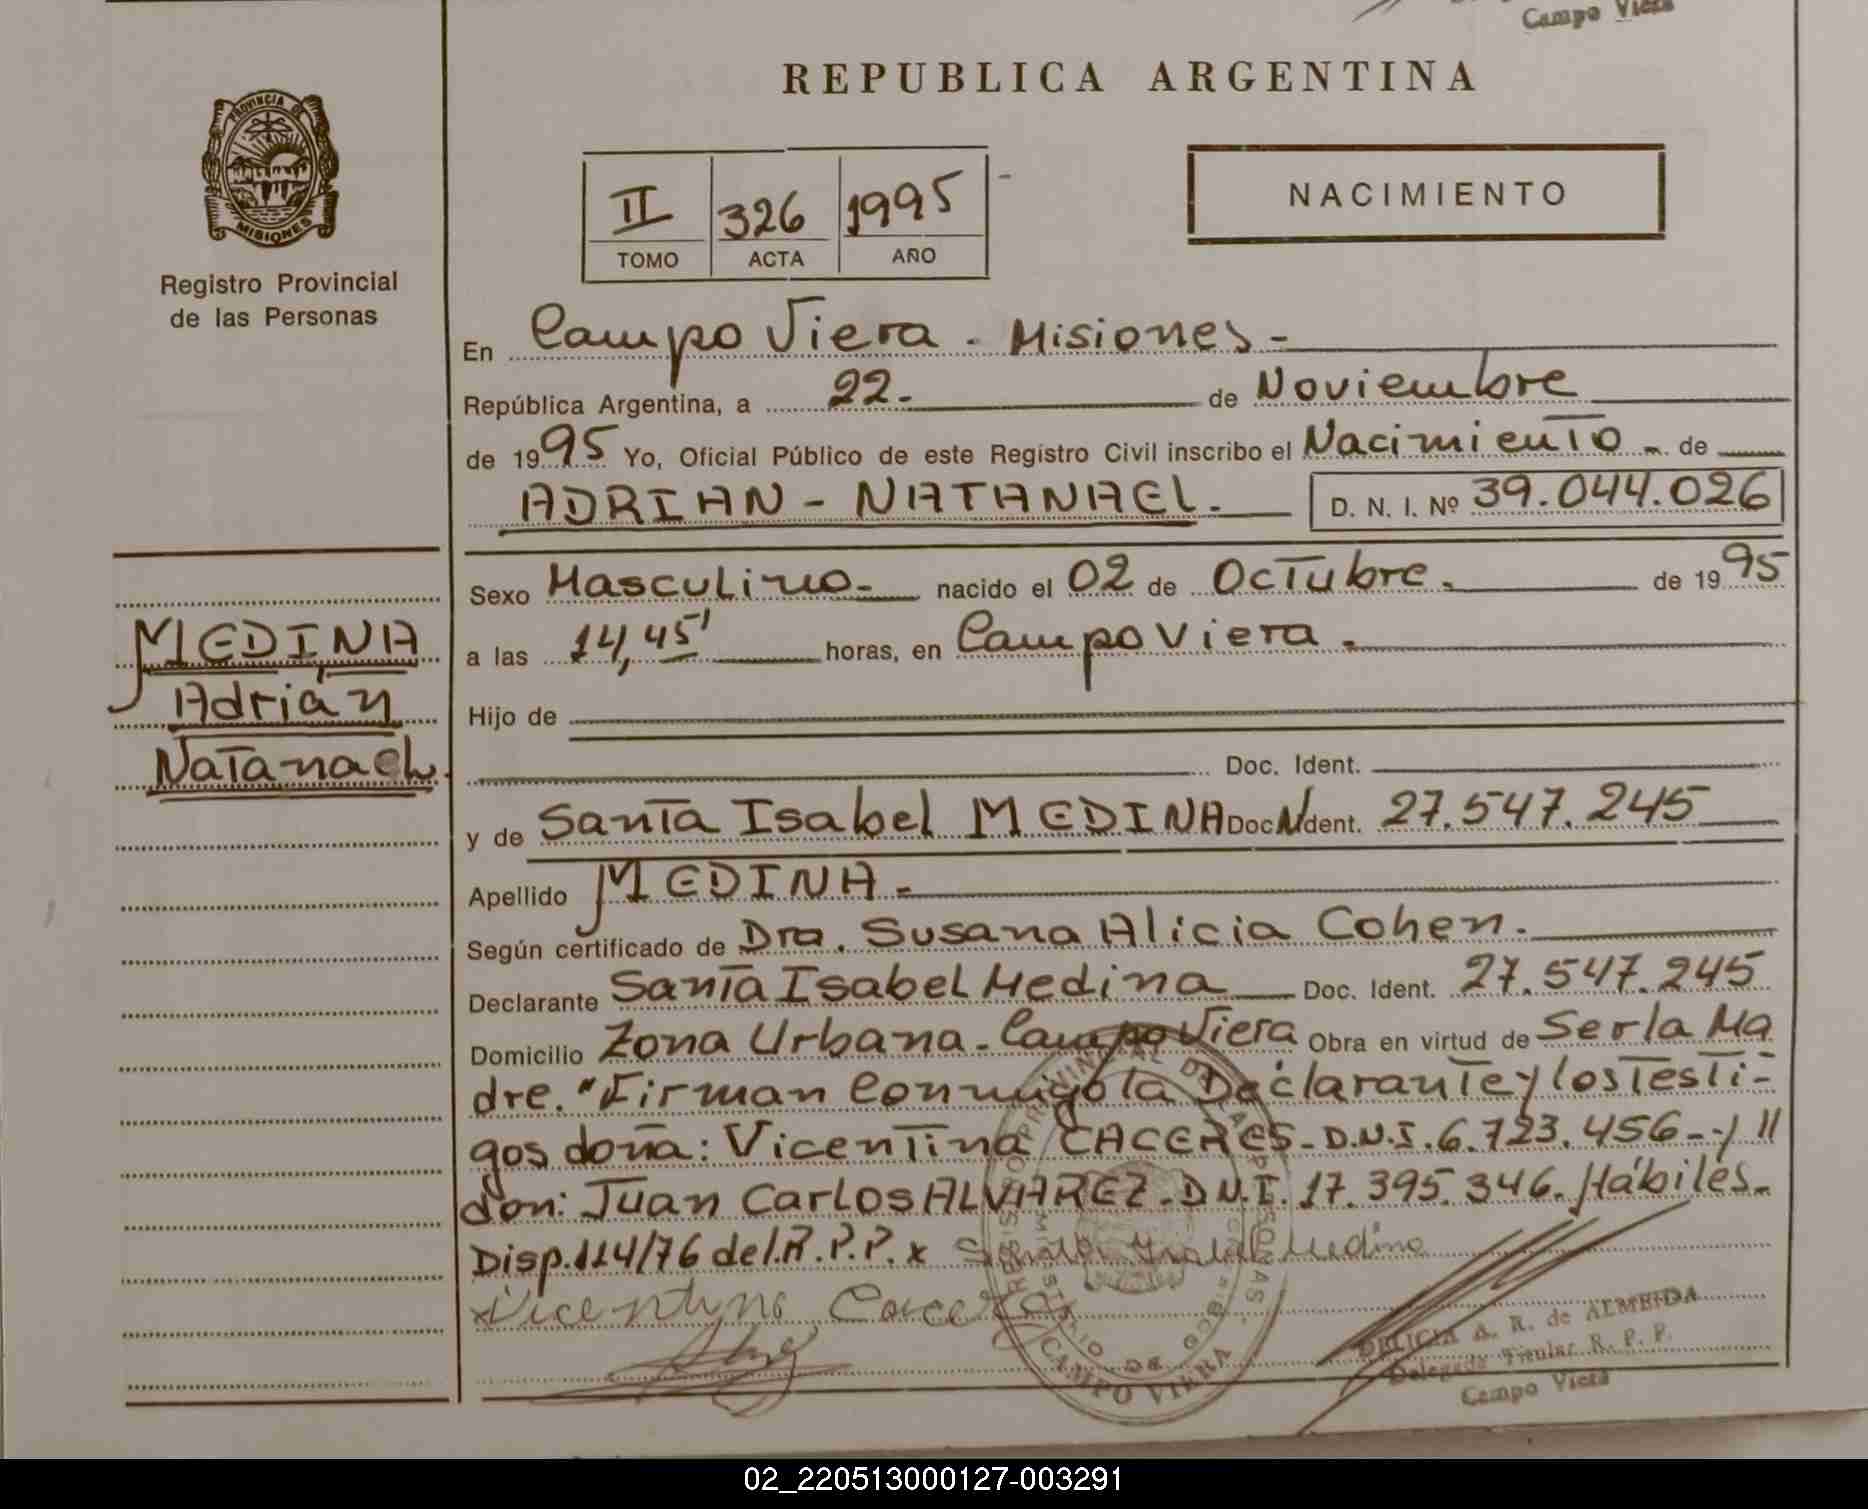 Campo Viera
REPUBLICA ARGENTINA
PROVINCIA DE
MISIONES
Registro Provincial
de las Personas
II 326 1995
TOMO ACTA AÑO
NACIMIENTO
En Campo Viera - Misiones -
República Argentina, a 22. de Noviembre
de 1995 Yo, Oficial Público de este Registro Civil inscribo el Nacimiento - de
ADRIAN - NATANAEL. D. N. I. Nº 39.044.026
Sexo Masculino - nacido el 02 de Octubre. de 1995
MEDINA
Adrián
Natanael.
a las 14,45' horas, en Campo Viera.
Hijo de
Doc. Ident.
y de Santa Isabel MEDINA Doc. Ident. 27.547.245
Apellido MEDINA.-
Según certificado de Dra. Susana Alicia Cohen.
Declarante Santa Isabel Medina Doc. Ident. 27.547.245
Domicilio Zona Urbana - Campo Viera Obra en virtud de Ser la Ma
dre. "Firman Conmigo la Declarante y los Testi-
gos doña: Vicentina CACERES - D.N.I. 6.723.456 - y "
don: Juan Carlos ALVAREZ - D.N.I. 17.395.346. Hábiles.
Disp. 114/76 del R.P.P. x Santa Isabel Medina
x Vicentina Caceres
CAMPO VIERA
DELICIA A. R. de ALMEIDA
Delegada Titular R. P. P.
Campo Viera
02_220513000127-003291